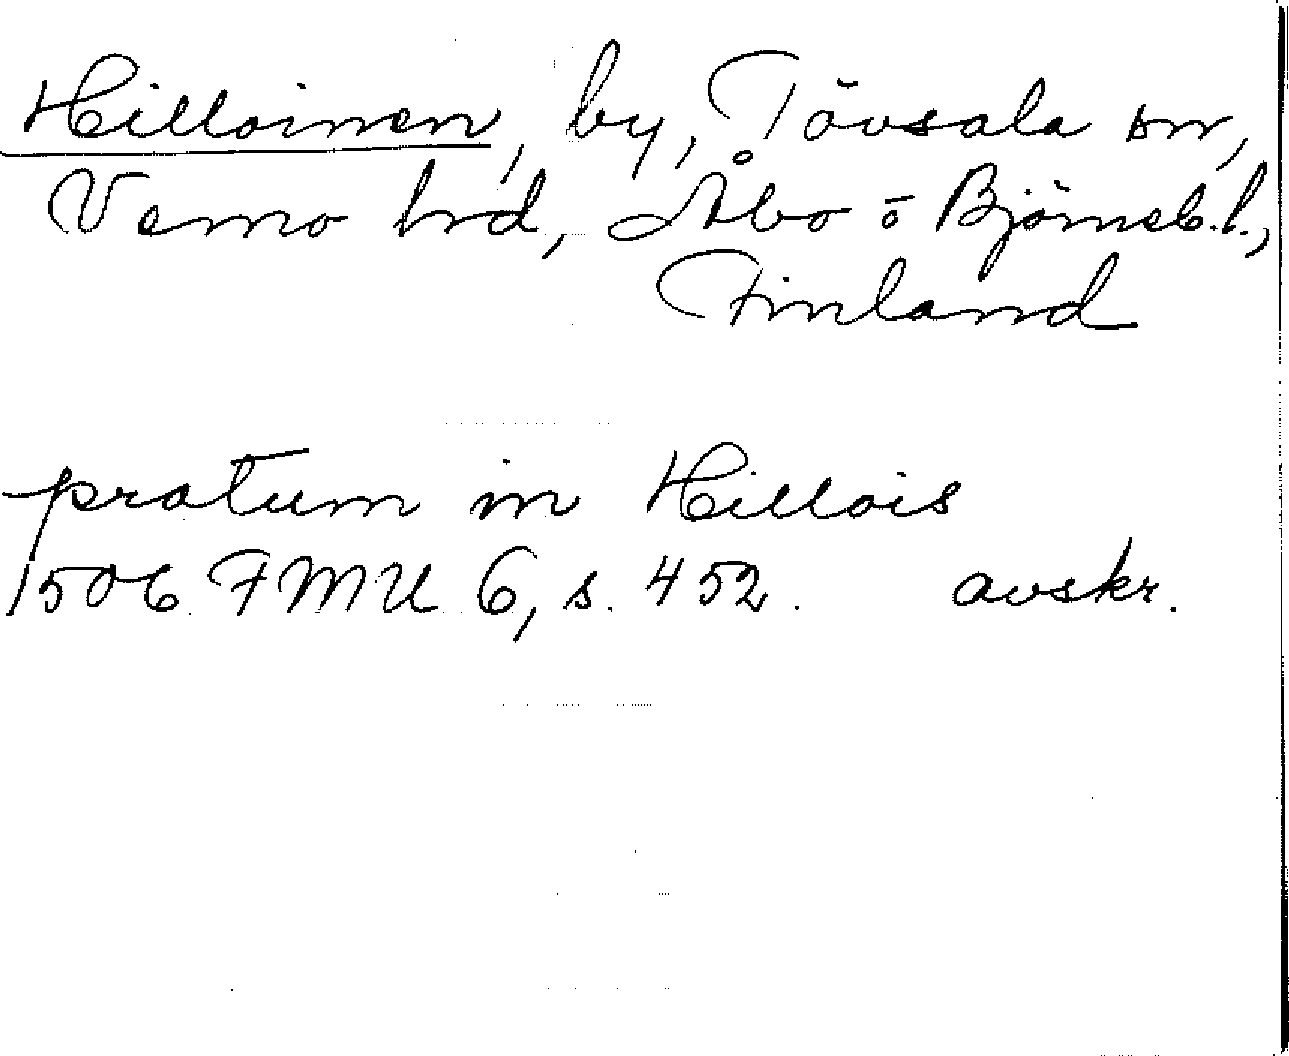 Hilloinen, by, Tövsala sn,
Vemo hrd, Åbo o Björneb. l.,
Finland
pratum in Hillois
1506 FMU 6, s. 452. avskr.